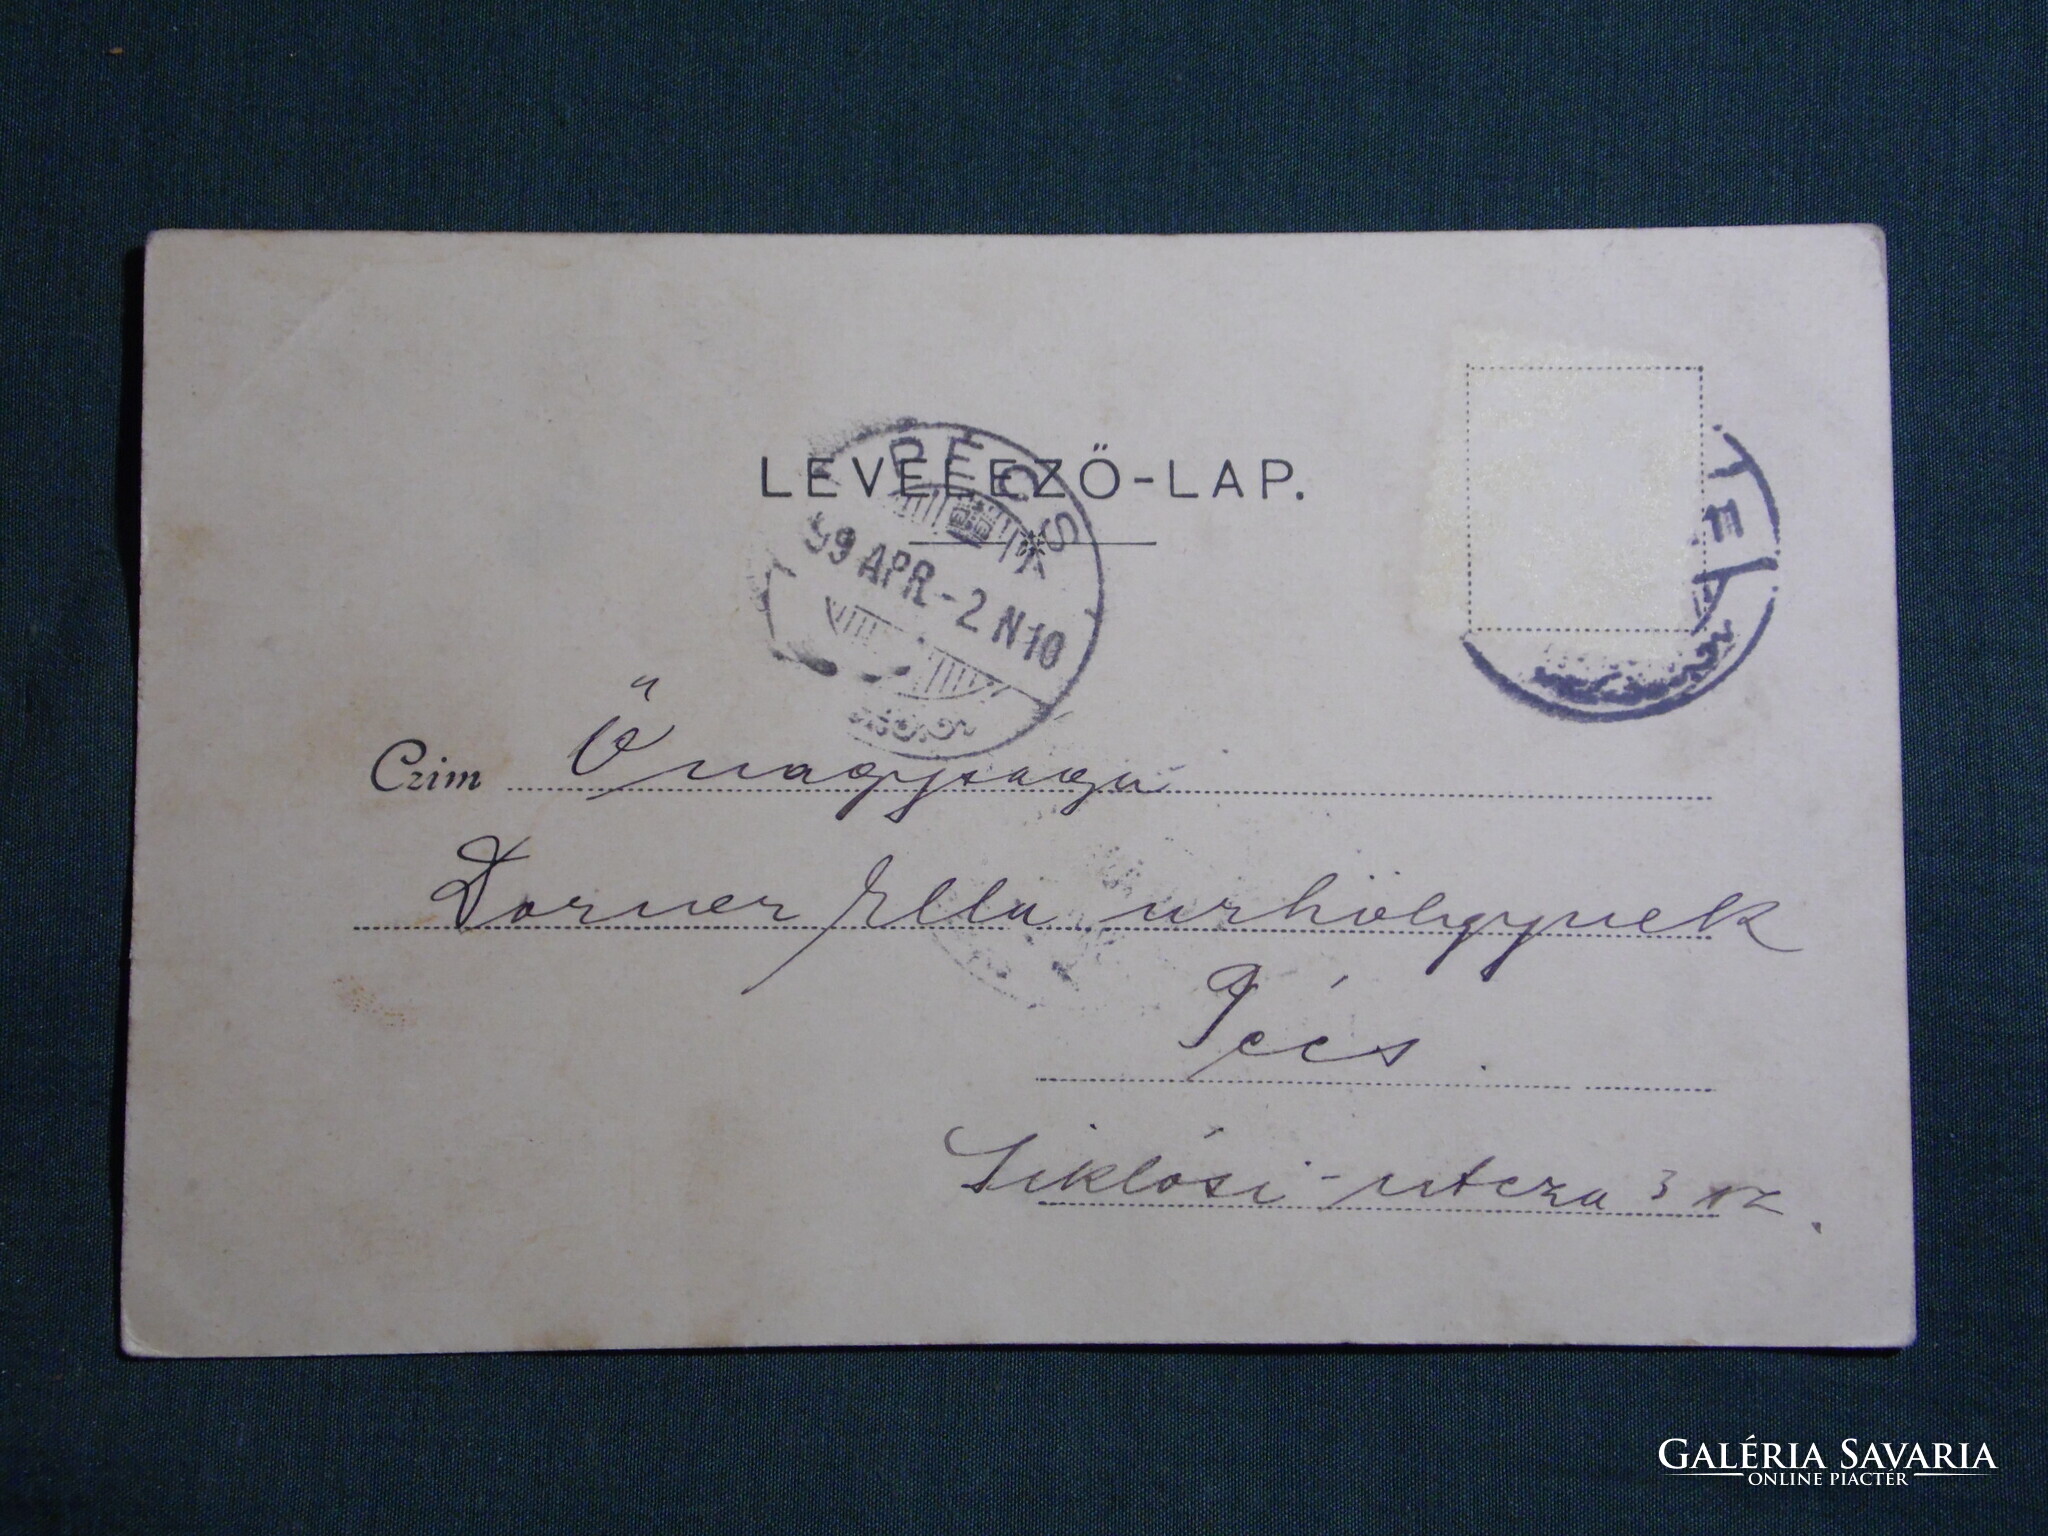 LEVELEZŐ-LAP.
PÉCS
99 APR - 2 N 10
Czim Őnagysaga
Dorner Ella urhölgynek
Pécs.
Siklósi-utcza 3 sz.
GALÉRIA SAVARIA
ONLINE PIACTÉR